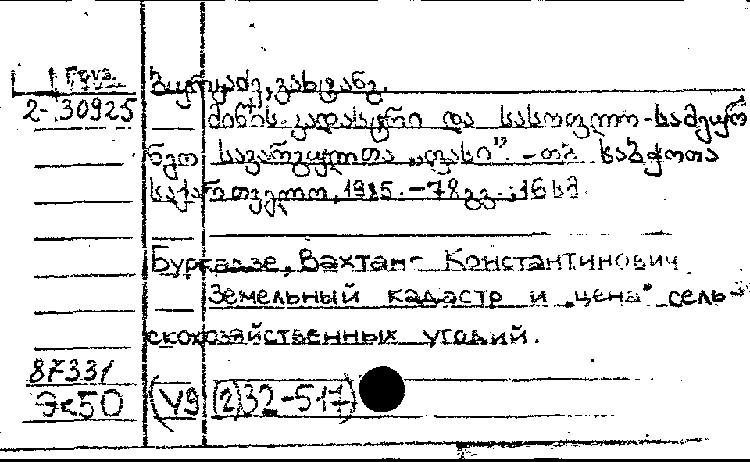 Груз.
2-30925
ბურკაძე, ვახტანგ.
მიწის კადასტრი და სასოფლო-სამეურ
ნეო სავარგულთა „ფასი". - თბ. საბჭოთა
საქართველო, 1985. - 78 გვ.; 16 სმ.
Буркадзе, Вахтанг Константинович
Земельный кадастр и „цена" сель-
скохозяйственных угодий.
87331
Эк50 (У9(2)32-517)